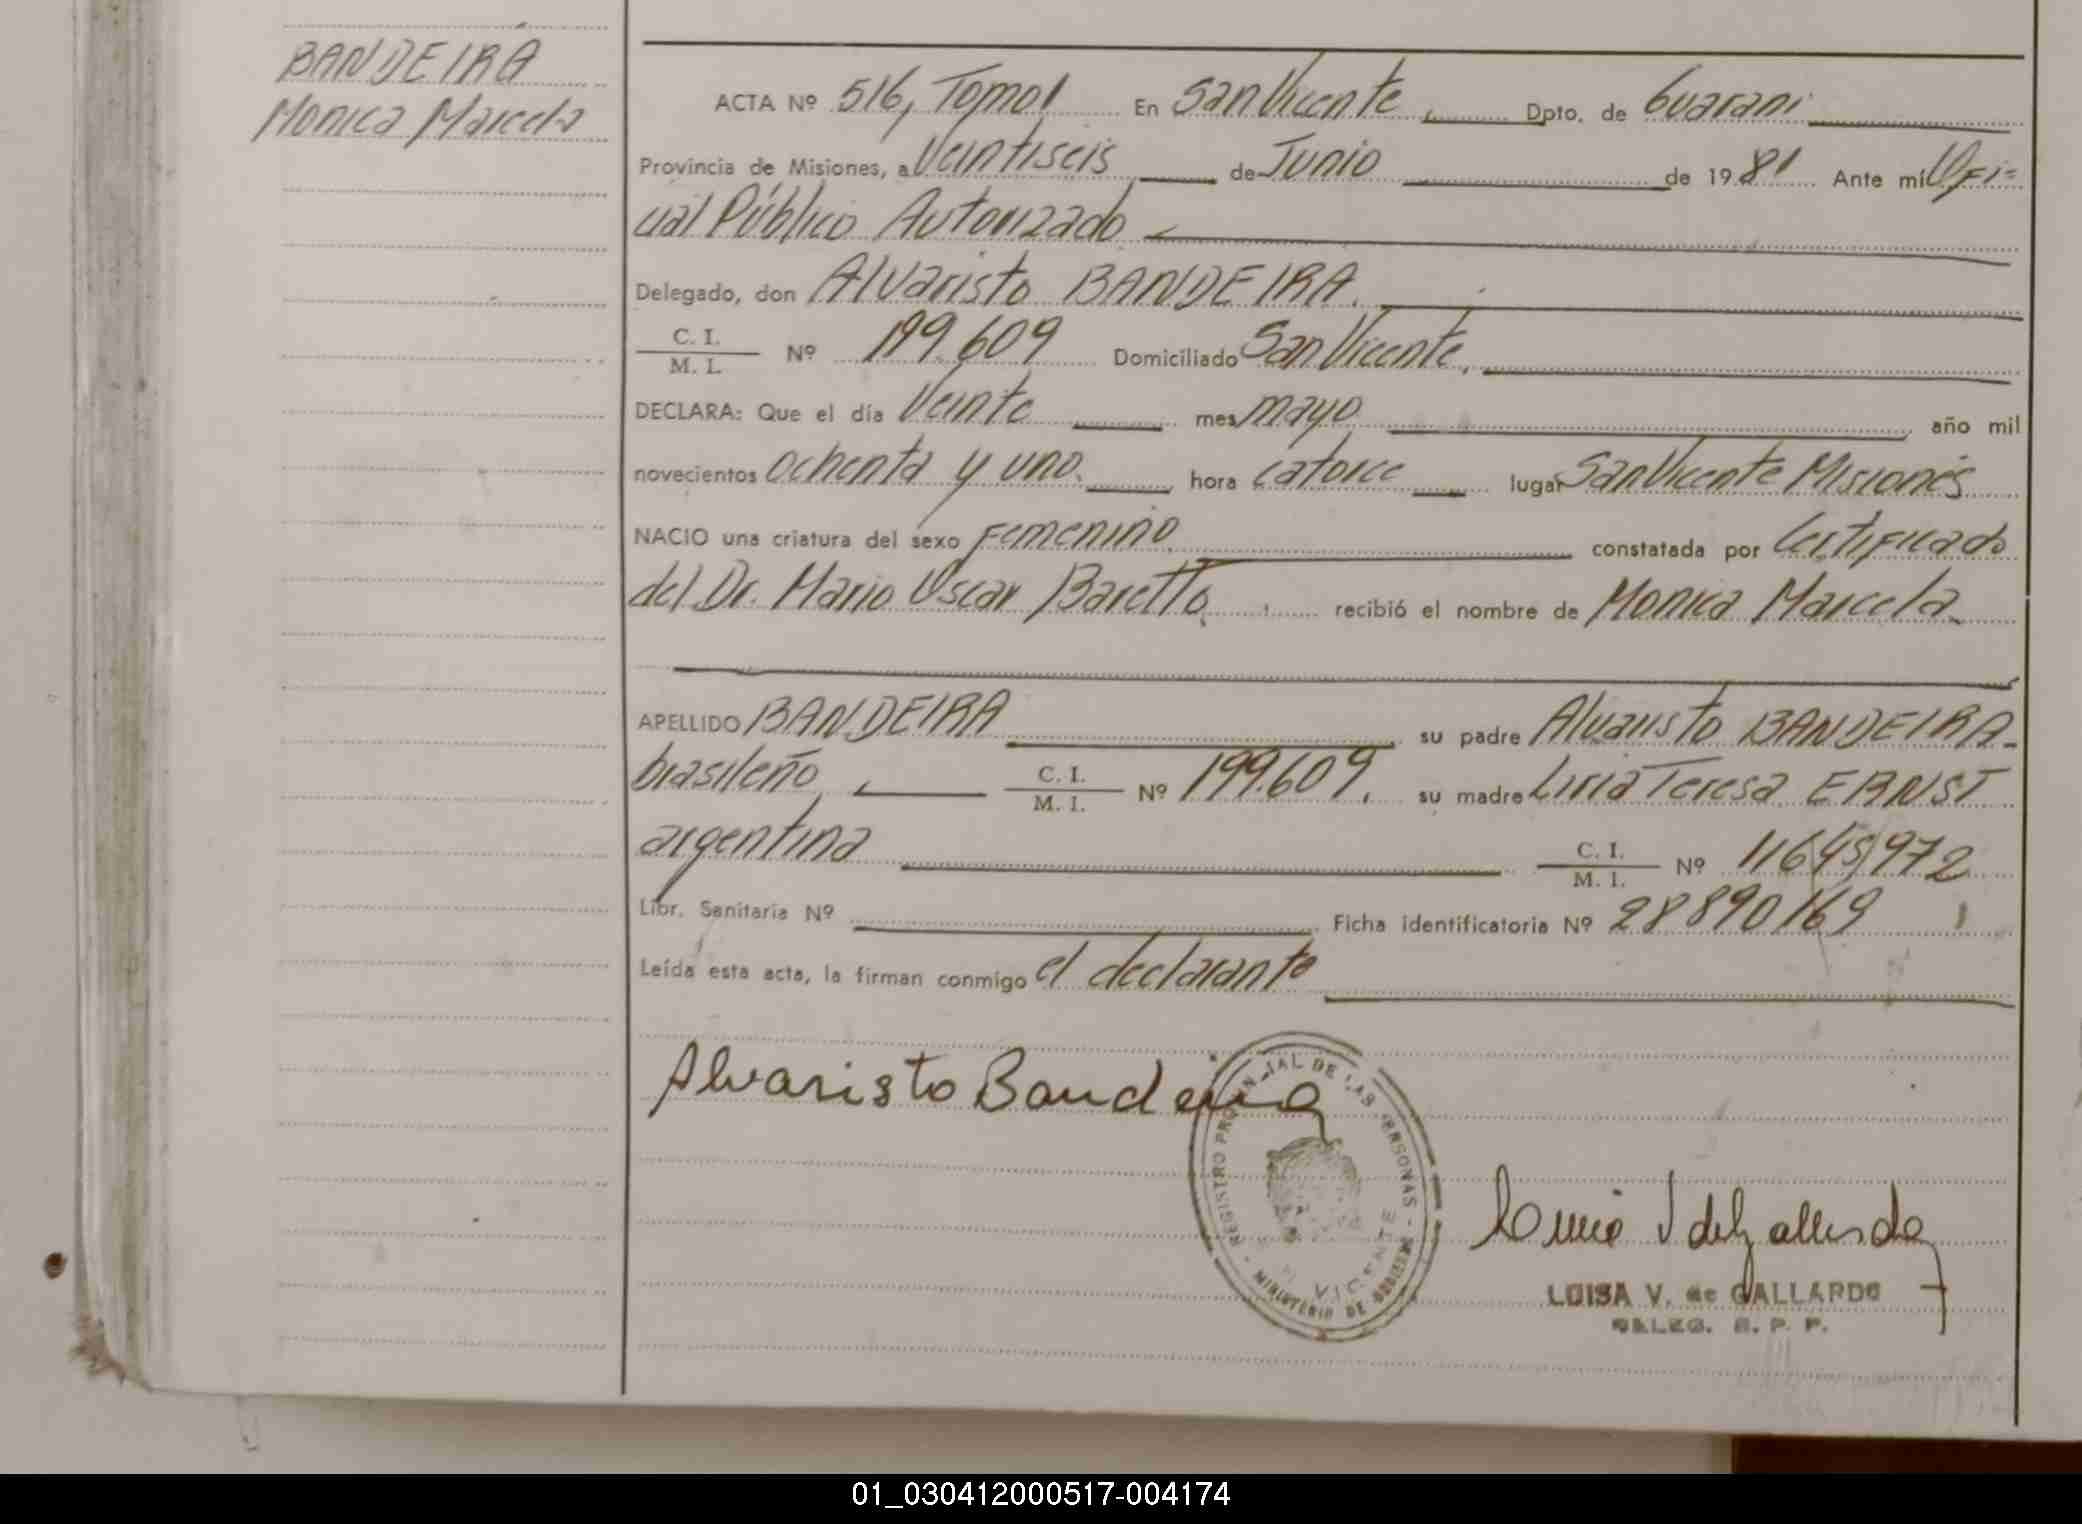 BANDEIRA
Monica Marcela
ACTA Nº 516, Tomo I En San Vicente, Dpto. de Guarani
Provincia de Misiones, a Veintiseis de Junio de 1981 Ante mí Ofi=
cial Público Autorizado
Delegado, don Alvaristo BANDEIRA.
C. I. / M. I. Nº 199.609 Domiciliado San Vicente,
DECLARA: Que el día Veinte mes mayo año mil
novecientos ochenta y uno. hora catorce lugar San Vicente Misiones
NACIO una criatura del sexo Femenino constatada por Certificado
del Dr. Mario Oscar Baretto, recibió el nombre de Monica Marcela
APELLIDO BANDEIRA su padre Alvaristo BANDEIRA-
brasileño, C. I. / M. I. Nº 199.609, su madre Liria Teresa ERNST
argentina C. I. / M. I. Nº 11645972
Libr. Sanitaria Nº Ficha identificatoria Nº 28890169
Leída esta acta, la firman conmigo el declarante
Alvaristo Bandeira
REGISTRO PROVINCIAL DE LAS PERSONAS - MINISTERIO DE GOBIERNO -
VICENTE
LUISA V. de GALLARDO
DELEG. R. P. P.
01_030412000517-004174